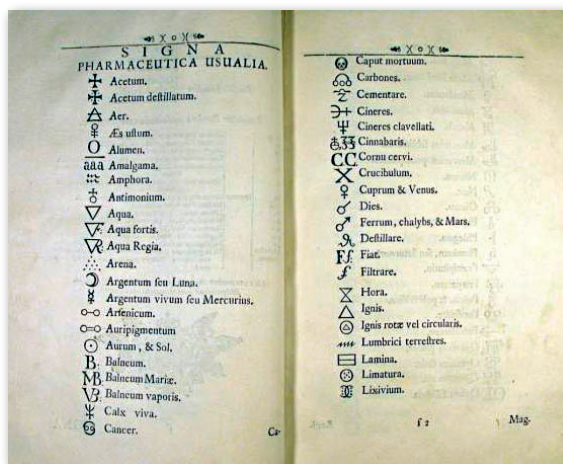 SIGNA
PHARMACEUTICA USUALIA.
Acetum.
Acetum deſtillatum.
Aer.
Æs uſtum.
Alumen.
aaa Amalgama.
Amphora.
Antimonium.
Aqua.
Aqua fortis.
Aqua Regia.
Arena.
Argentum ſeu Luna.
Argentum vivum ſeu Mercurius.
Arſenicum.
Auripigmentum
Aurum, & Sol.
B. Balneum.
MB. Balneum Mariæ.
VB. Balneum vaporis.
Calx viva.
Cancer.
Ca-
Caput mortuum.
Carbones.
Cementare.
Cineres.
Cineres clavellati.
Cinnabaris.
CC. Cornu cervi.
Crucibulum.
Cuprum & Venus.
Dies.
Ferrum, chalybs, & Mars.
Deſtillare.
Ff. Fiat.
f Filtrare.
Hora.
Ignis.
Ignis rotæ vel circularis.
Lumbrici terreſtres.
Lamina.
Limatura.
Lixivium.
ſ 2
Mag.